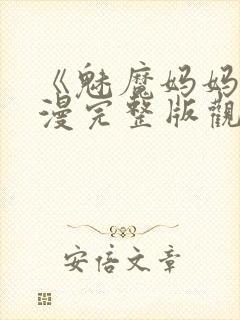 《魅魔妈妈
漫完整版觀
安倍文章